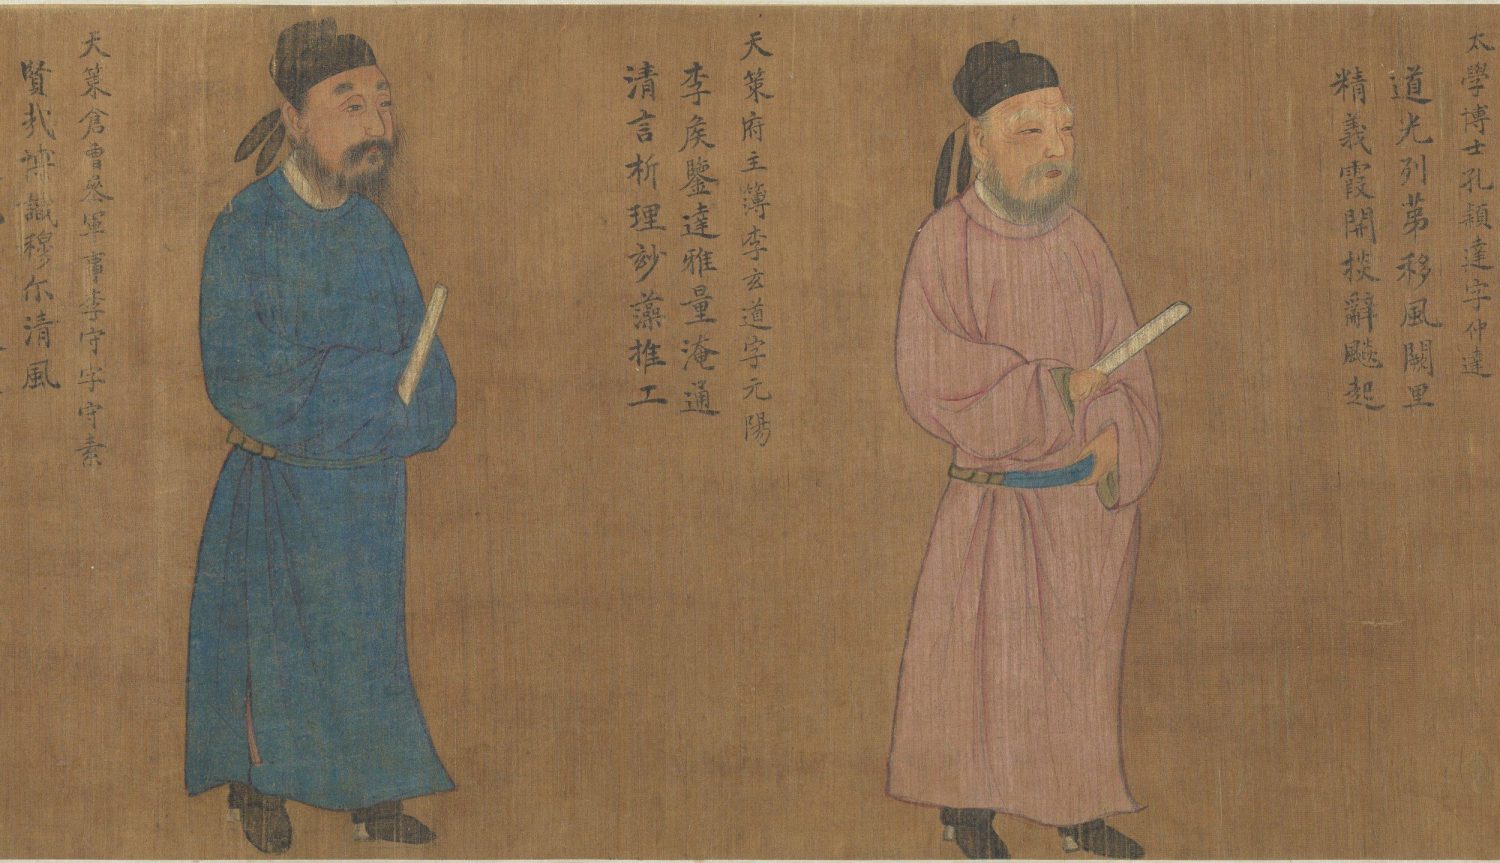 太學博士孔穎達字仲達
道光列苐移風闕里
精義霞開掞辭飈起
天策府主簿李玄道字元陽
李侯鑒達雅量淹通
清言析理玅藻推工
天策倉曹叅軍事李守字守素
賢哉博識穆尔清風